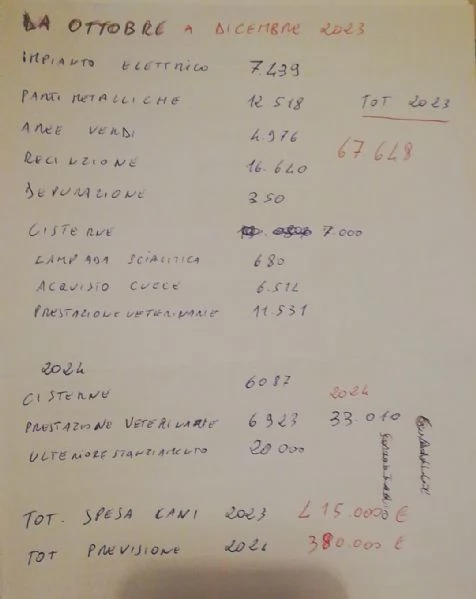 DA OTTOBRE A DICEMBRE 2023
IMPIANTO ELETTRICO 7.439
PARTI METALLICHE 12 518
TOT 2023
AREE VERDI 4.976
67.648
RECINZIONE 16.640
DEPURAZIONE 350
CISTERNE 7.000
LAMPADA SCIALITICA 680
ACQUISTO CUCCE 6.512
PRESTAZIONE VETERINARIE 11.531
2024
CISTERNE 6087
2024
PRESTAZIONE VETERINARIE 6 923 33.010
ULTERIORE STANZIAMENTO 20 000
TOT. SPESA CANI 2023 415.0000 €
TOT PREVISIONE 2024 380.000 €